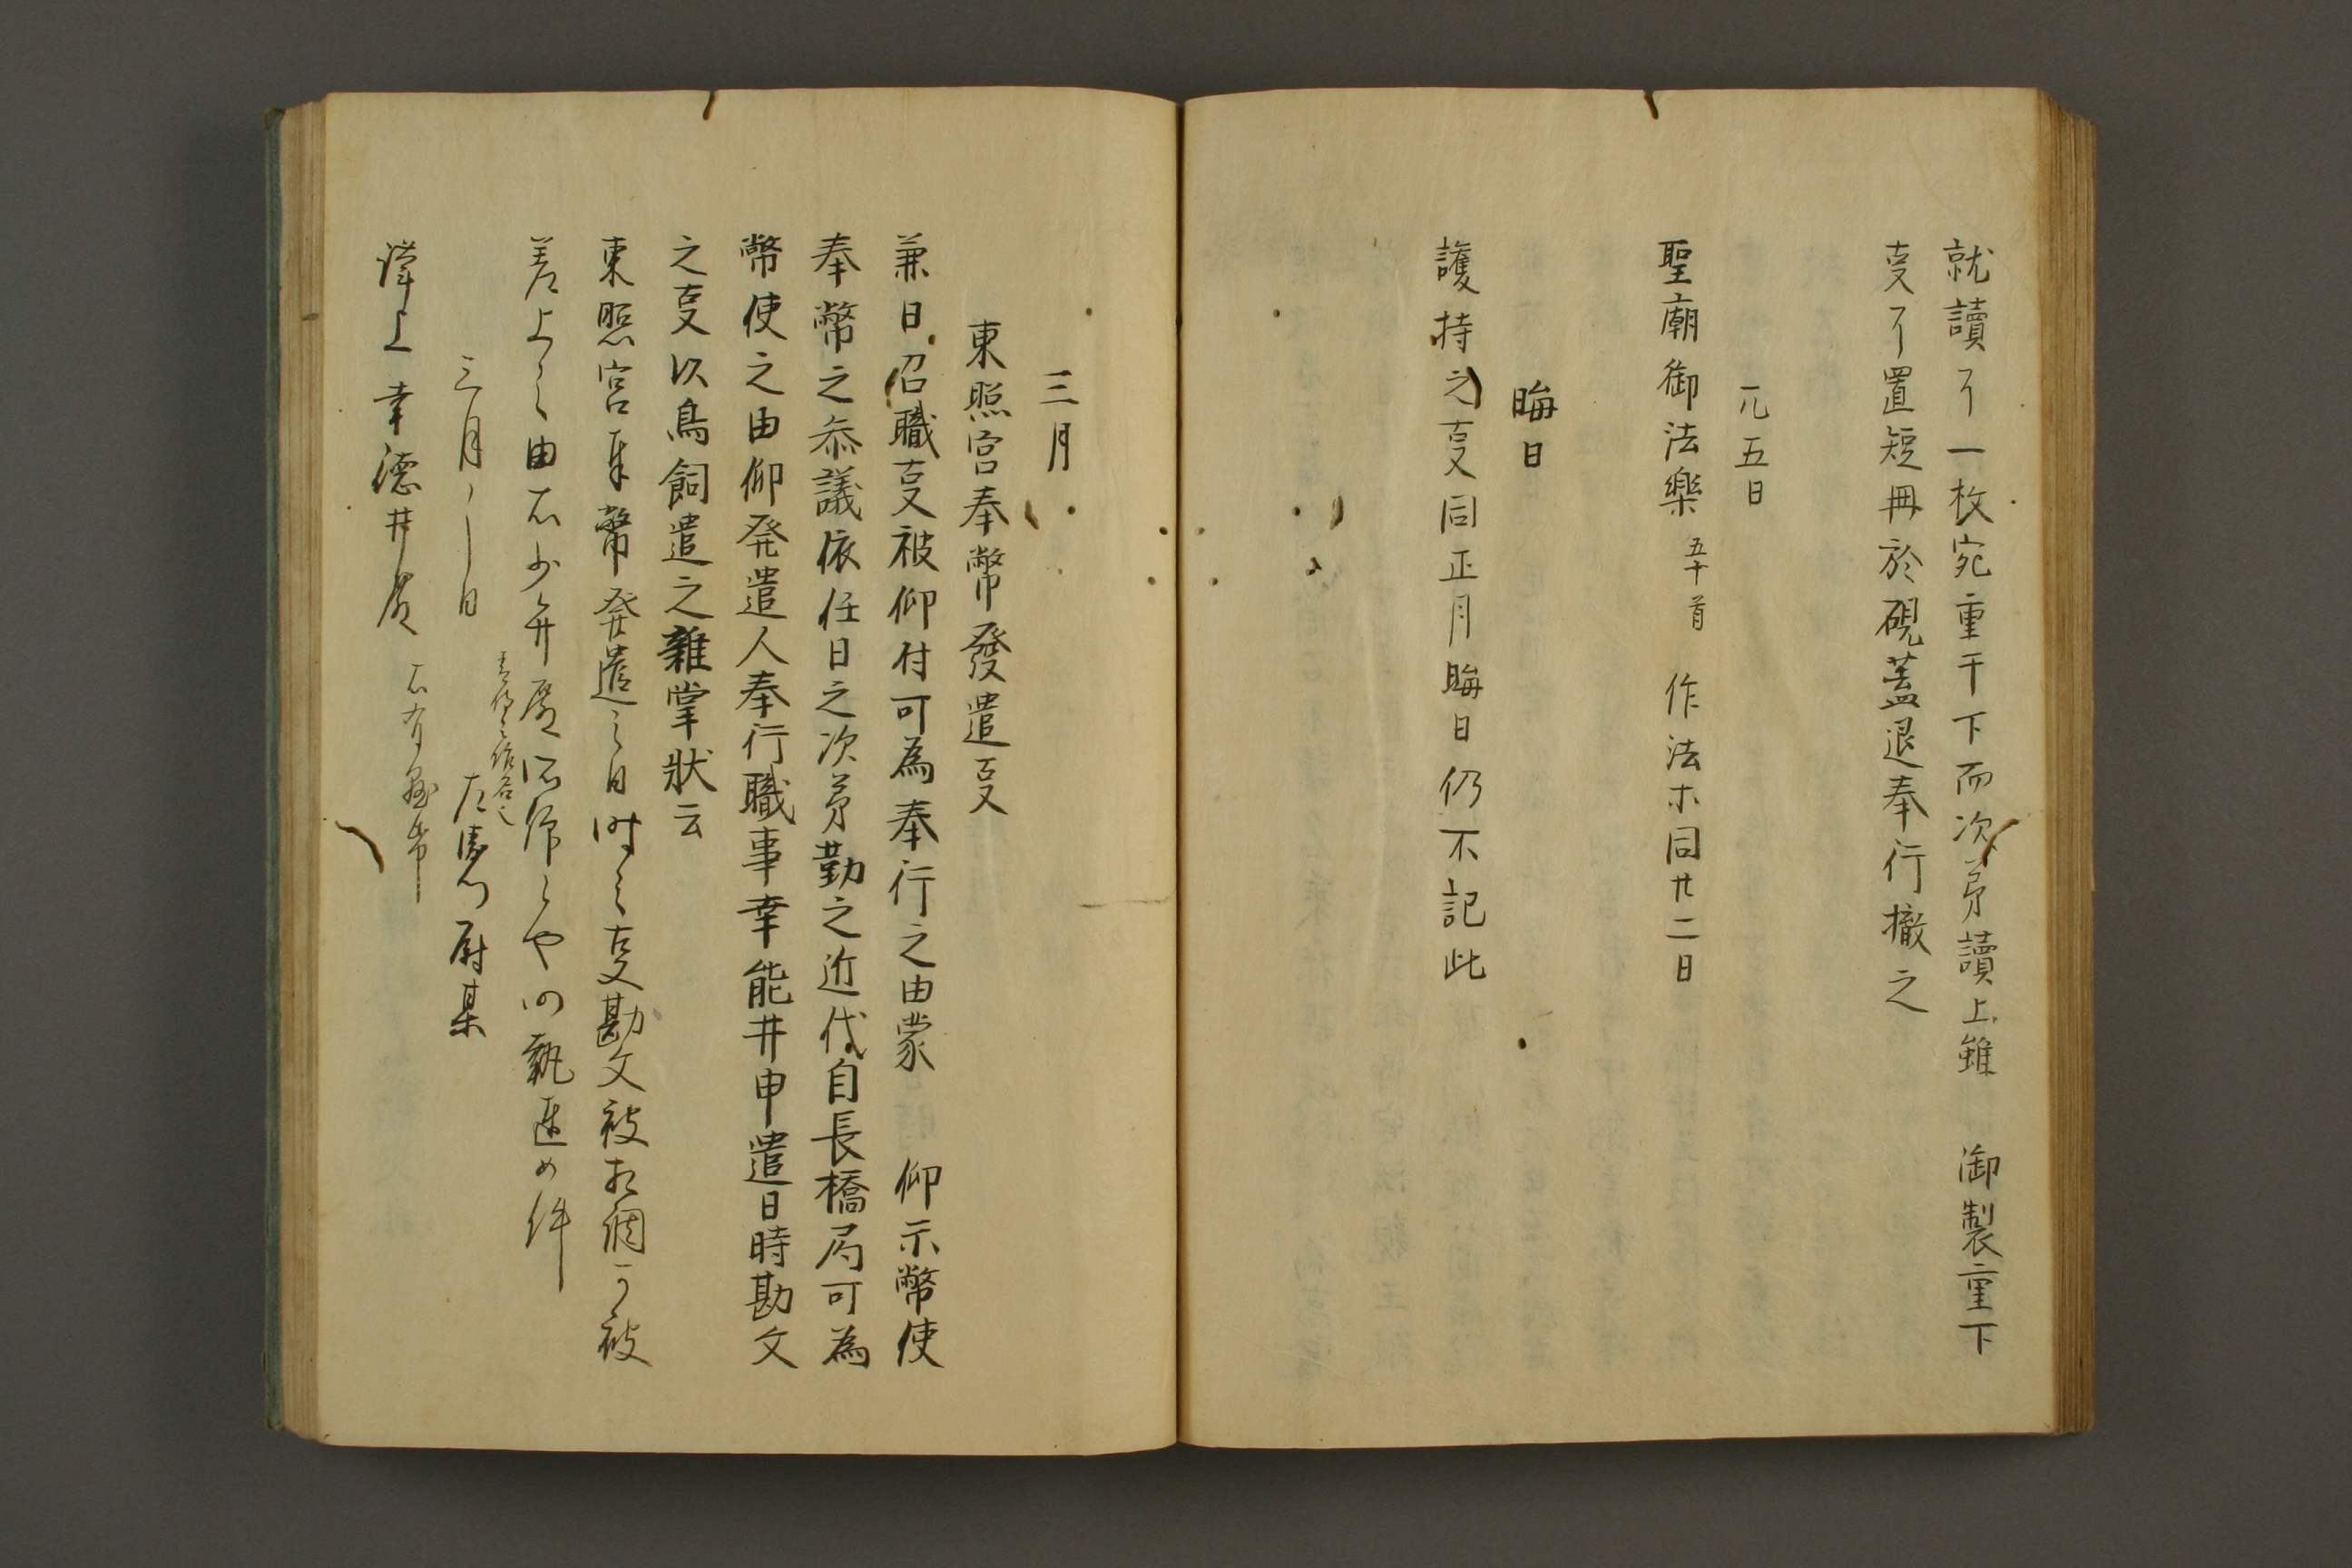 就讀了一枚宛重干下而次第讀上雖　御製重下
叓了置短冊於硯蓋退奉行撤之
廿五日
聖廟御法樂　五十首　作法木同廿二日
晦日
護持之叓同正月晦日仍不記此
三月
東照宮奉幣發遣叓
兼日召職叓被仰付可為奉行之由蒙　仰示幣使
奉幣之叅議依任日之次第勤之近代自長橋局可為
幣使之由仰発遣人奉行職事幸能井申遣日時勘文
之叓以鳥飼遣之雜掌狀云
東照宮奉幣発遣之日時之叓勘文被相調可被
差上之由右少弁殿所仰也仍執達如件
三月　日
左衛門尉某
謹上　幸德井殿